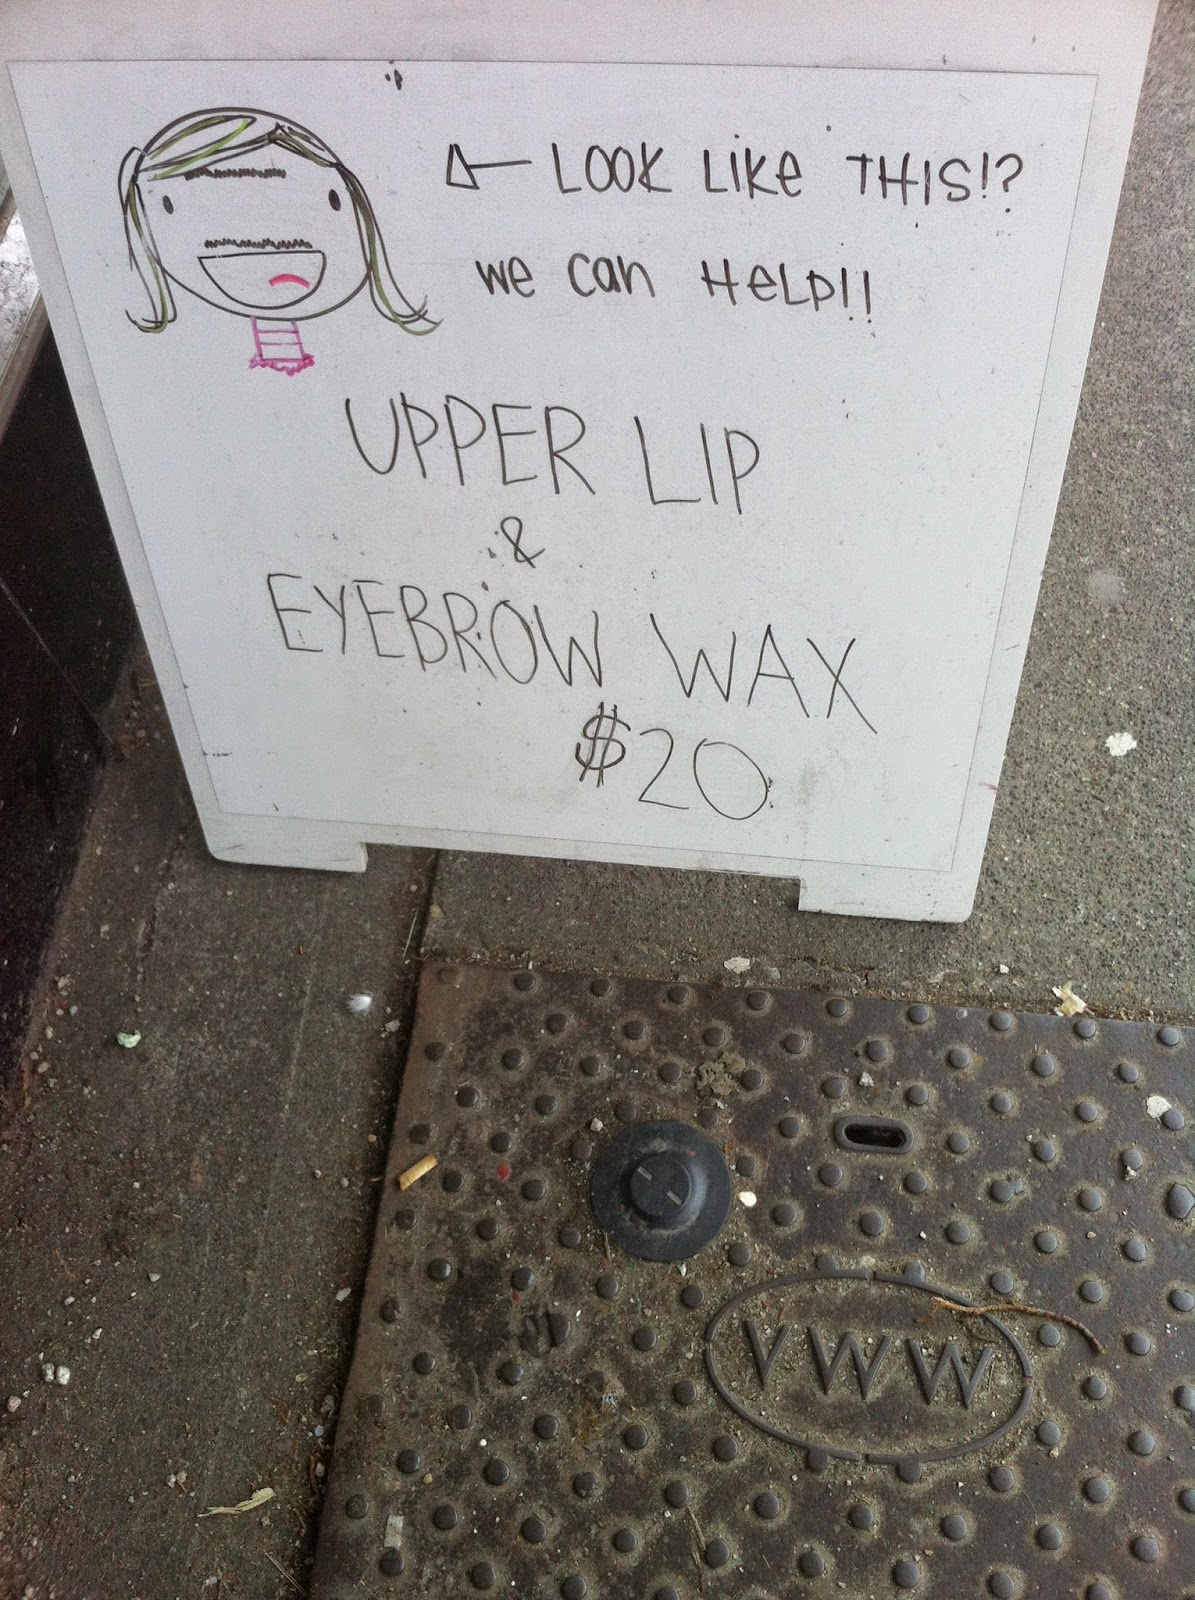 LOOK LIKE THIS!?
we can HeLp!!
UPPER LIP
&
EYEBROW WAX
$20
VWW